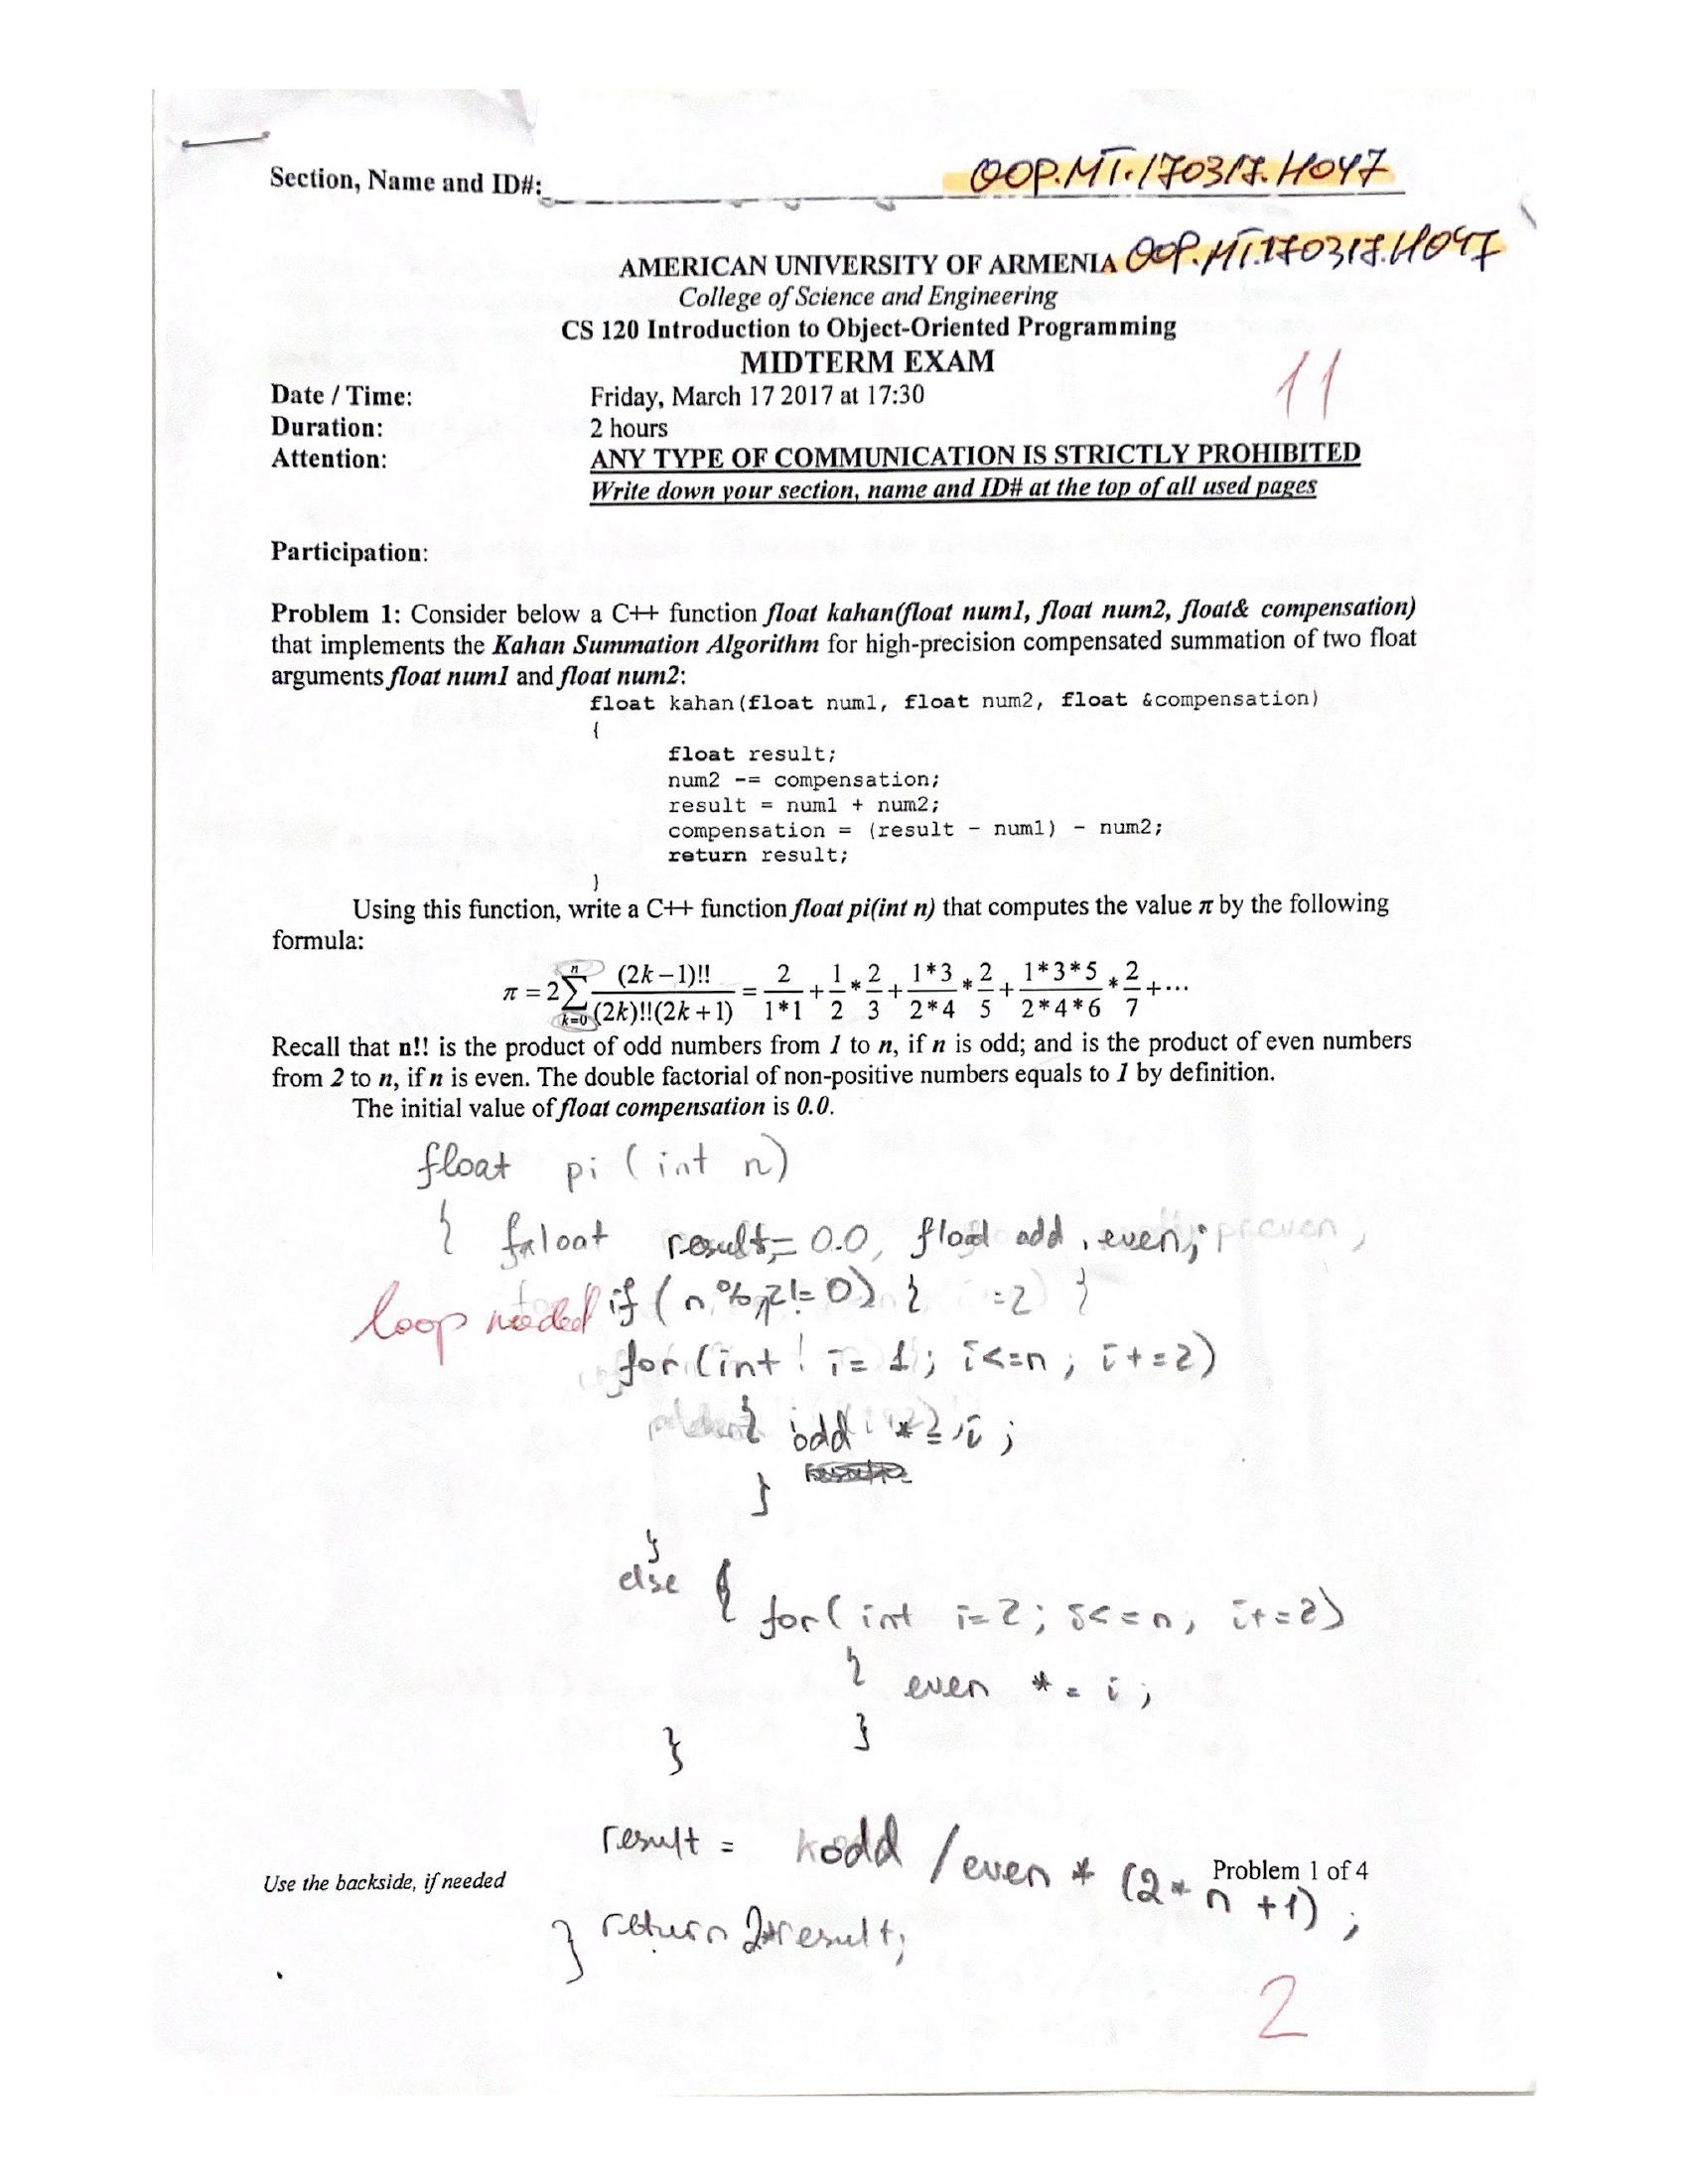 Section, Name and ID#: OOP.MT.170317.H047
AMERICAN UNIVERSITY OF ARMENIA OOP.MT.170317.H047
College of Science and Engineering
CS 120 Introduction to Object-Oriented Programming
MIDTERM EXAM
11
Date / Time: Friday, March 17 2017 at 17:30
Duration: 2 hours
Attention: ANY TYPE OF COMMUNICATION IS STRICTLY PROHIBITED
Write down your section, name and ID# at the top of all used pages
Participation:
Problem 1: Consider below a C++ function float kahan(float num1, float num2, float& compensation)
that implements the Kahan Summation Algorithm for high-precision compensated summation of two float
arguments float num1 and float num2:
float kahan(float num1, float num2, float &compensation)
{
float result;
num2 -= compensation;
result = num1 + num2;
compensation = (result - num1) - num2;
return result;
}
Using this function, write a C++ function float pi(int n) that computes the value π by the following
formula:
π = 2 Σ_{k=0}^{n} (2k−1)!! / ((2k)!!(2k+1)) = 2/(1*1) + 1/2 * 2/3 + (1*3)/(2*4) * 2/5 + (1*3*5)/(2*4*6) * 2/7 + ···
Recall that n!! is the product of odd numbers from 1 to n, if n is odd; and is the product of even numbers
from 2 to n, if n is even. The double factorial of non-positive numbers equals to 1 by definition.
The initial value of float compensation is 0.0.
float pi (int n)
{ float result = 0.0, float odd, even;
loop needed if (n % 2 != 0) {
for (int i = 1; i<=n; i+=2)
{ odd *= i;
}
}
else {
for( int i=2; i<=n; i+=2)
{ even *= i;
}
}
result = odd / even * (2* n +1);
Use the backside, if needed Problem 1 of 4
} return 2*result;
2